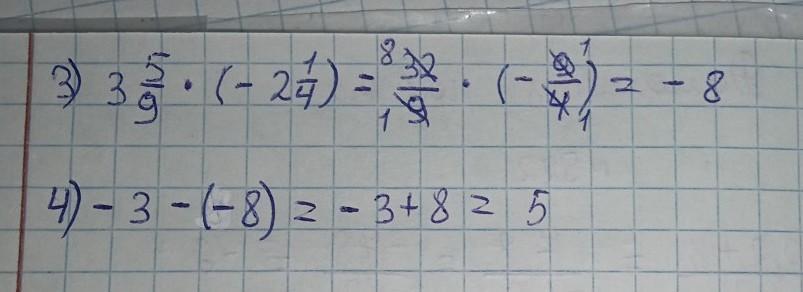 3) 3 5/9 · (- 2 1/4) = 8 32/9 1 · (- 9/4 1 1) = - 8
4) - 3 - (- 8) = - 3 + 8 = 5